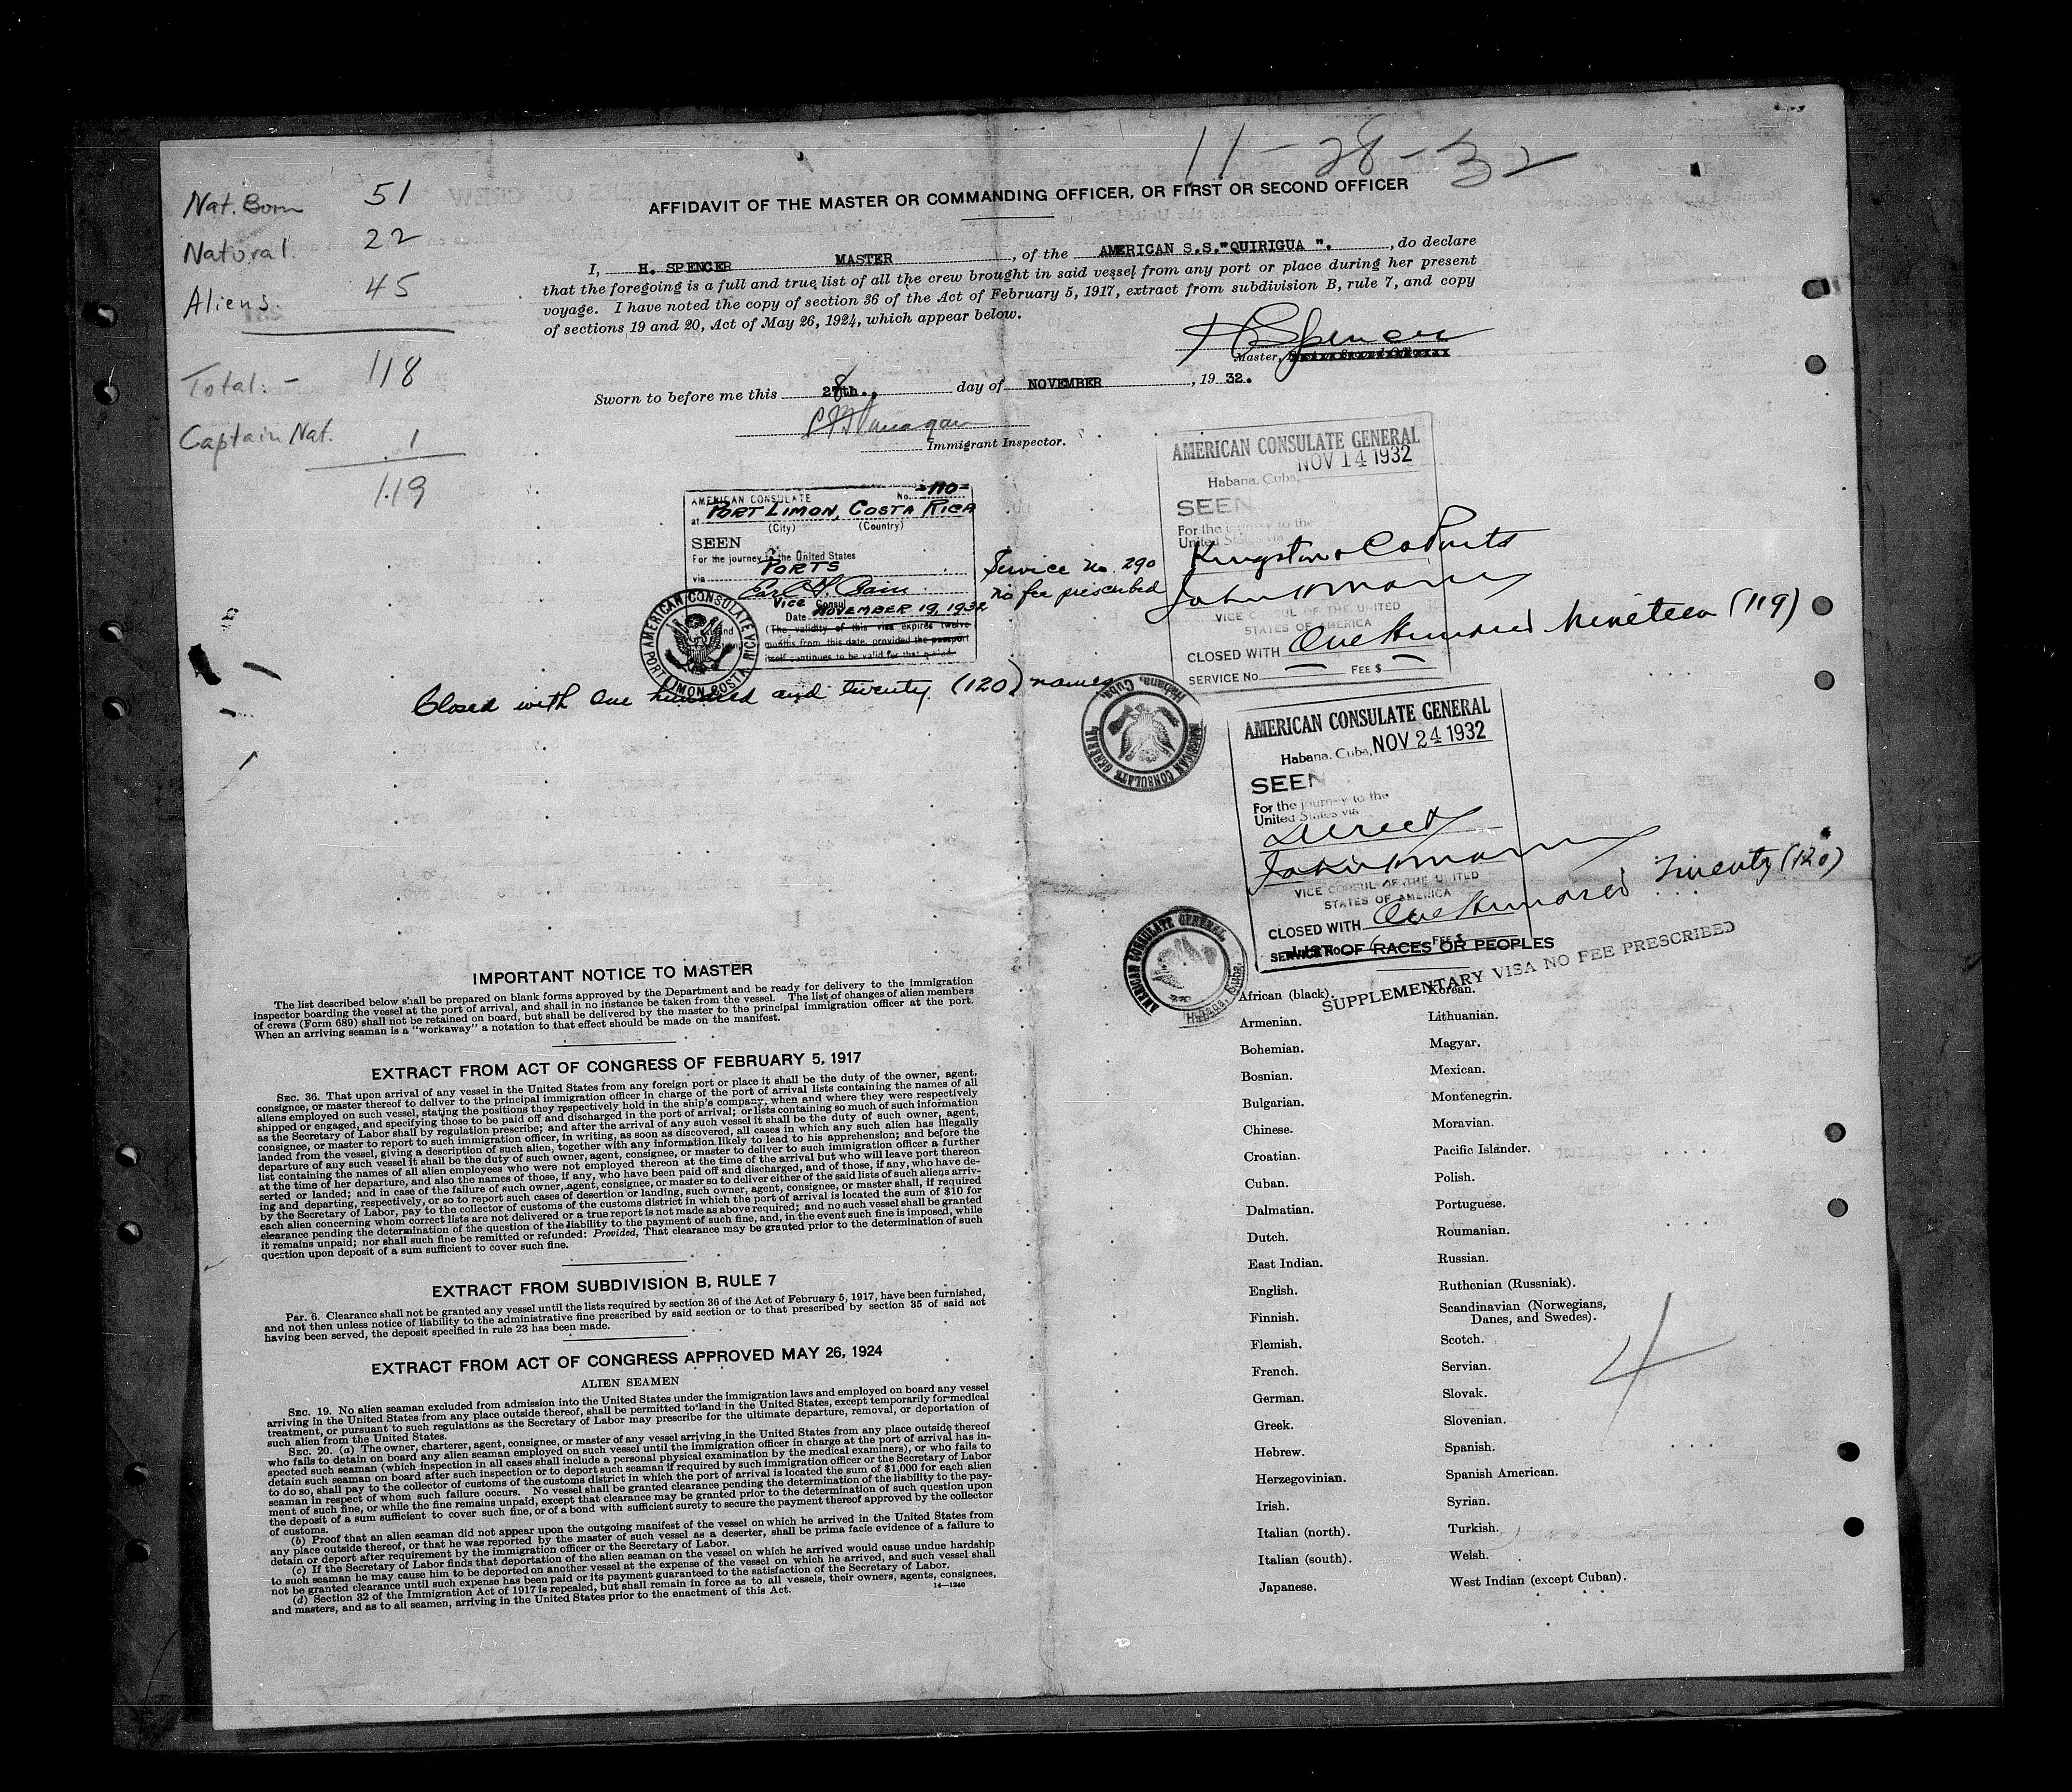 11-28-32
Nat. Born 51
Natural. 22
Aliens. 45
Total:- 118
Captain Nat. 1
119
AFFIDAVIT OF THE MASTER OR COMMANDING OFFICER, OR FIRST OR SECOND OFFICER
I, H. SPENCER MASTER, of the AMERICAN S.S."QUIRIGUA "., do declare
that the foregoing is a full and true list of all the crew brought in said vessel from any port or place during her present
voyage. I have noted the copy of section 36 of the Act of February 5, 1917, extract from subdivision B, rule 7, and copy
of sections 19 and 20, Act of May 26, 1924, which appear below.
H Spencer
Master,
Sworn to before me this 28th., day of NOVEMBER, 1932.
Immigrant Inspector.
AMERICAN CONSULATE No. -110-
at PORT LIMON, COSTA RICA
(City) (Country)
SEEN
For the journey to the United States
via PORTS
Vice Consul
Date NOVEMBER 19, 1932
(The validity of this visa expires twelve
months from this date, provided the passport
itself continues to be valid for that period.
AMERICAN CONSULATE
PORT LIMON COSTA RICA
Service No. 290
no fee prescribed
Closed with One hundred and twenty (120) names
AMERICAN CONSULATE GENERAL
NOV 14 1932
Habana, Cuba,
SEEN
For the journey to the
United States via
Kingston &
VICE CONSUL OF THE UNITED
STATES OF AMERICA
CLOSED WITH One Hundred Nineteen (119)
SERVICE No. FEE $
AMERICAN CONSULATE GENERAL
Habana, Cuba.
AMERICAN CONSULATE GENERAL
Habana, Cuba, NOV 24 1932
SEEN
For the journey to the
United States via
Direct
VICE CONSUL OF THE UNITED
STATES OF AMERICA
CLOSED WITH One Hundred Twenty (120)
SERVICE No. FEE $
AMERICAN CONSULATE GENERAL,
Habana, Cuba.
SUPPLEMENTARY VISA NO FEE PRESCRIBED
IMPORTANT NOTICE TO MASTER
The list described below shall be prepared on blank forms approved by the Department and be ready for delivery to the immigration
inspector boarding the vessel at the port of arrival, and shall in no instance be taken from the vessel. The list of changes of alien members
of crews (Form 689) shall not be retained on board, but shall be delivered by the master to the principal immigration officer at the port.
When an arriving seaman is a "workaway" a notation to that effect should be made on the manifest.
EXTRACT FROM ACT OF CONGRESS OF FEBRUARY 5, 1917
SEC. 36. That upon arrival of any vessel in the United States from any foreign port or place it shall be the duty of the owner, agent,
consignee, or master thereof to deliver to the principal immigration officer in charge of the port of arrival lists containing the names of all
aliens employed on such vessel, stating the positions they respectively hold in the ship's company, when and where they were respectively
shipped or engaged, and specifying those to be paid off and discharged in the port of arrival; or lists containing so much of such information
as the Secretary of Labor shall by regulation prescribe; and after the arrival of any such vessel it shall be the duty of such owner, agent,
consignee, or master to report to such immigration officer, in writing, as soon as discovered, all cases in which any such alien has illegally
landed from the vessel, giving a description of such alien, together with any information likely to lead to his apprehension; and before the
departure of any such vessel it shall be the duty of such owner, agent, consignee, or master to deliver to such immigration officer a further
list containing the names of all alien employees who were not employed thereon at the time of the arrival but who will leave port thereon
at the time of her departure, and also the names of those, if any, who have been paid off and discharged, and of those, if any, who have de-
serted or landed; and in case of the failure of such owner, agent, consignee, or master so to deliver either of the said lists of such aliens arriv-
ing and departing, respectively, or so to report such cases of desertion or landing, such owner, agent, consignee, or master shall, if required
by the Secretary of Labor, pay to the collector of customs of the customs district in which the port of arrival is located the sum of $10 for
each alien concerning whom correct lists are not delivered or a true report is not made as above required; and no such vessel shall be granted
clearance pending the determination of the question of the liability to the payment of such fine, and, in the event such fine is imposed, while
it remains unpaid; nor shall such fine be remitted or refunded: Provided, That clearance may be granted prior to the determination of such
question upon deposit of a sum sufficient to cover such fine.
EXTRACT FROM SUBDIVISION B, RULE 7
Par. 6. Clearance shall not be granted any vessel until the lists required by section 36 of the Act of February 5, 1917, have been furnished,
and not then unless notice of liability to the administrative fine prescribed by said section or to that prescribed by section 35 of said act
having been served, the deposit specified in rule 23 has been made.
EXTRACT FROM ACT OF CONGRESS APPROVED MAY 26, 1924
ALIEN SEAMEN
SEC. 19. No alien seaman excluded from admission into the United States under the immigration laws and employed on board any vessel
arriving in the United States from any place outside thereof, shall be permitted to land in the United States, except temporarily for medical
treatment, or pursuant to such regulations as the Secretary of Labor may prescribe for the ultimate departure, removal, or deportation of
such alien from the United States.
SEC. 20. (a) The owner, charterer, agent, consignee, or master of any vessel arriving in the United States from any place outside thereof
who fails to detain on board any alien seaman employed on such vessel until the immigration officer in charge at the port of arrival has in-
spected such seaman (which inspection in all cases shall include a personal physical examination by the medical examiners), or who fails to
detain such seaman on board after such inspection or to deport such seaman if required by such immigration officer or the Secretary of Labor
to do so, shall pay to the collector of customs of the customs district in which the port of arrival is located the sum of $1,000 for each alien
seaman in respect of whom such failure occurs. No vessel shall be granted clearance pending the determination of the liability to the pay-
ment of such fine, or while the fine remains unpaid, except that clearance may be granted prior to the determination of such question upon
the deposit of a sum sufficient to cover such fine, or of a bond with sufficient surety to secure the payment thereof approved by the collector
of customs.
(b) Proof that an alien seaman did not appear upon the outgoing manifest of the vessel on which he arrived in the United States from
any place outside thereof, or that he was reported by the master of such vessel as a deserter, shall be prima facie evidence of a failure to
detain or deport after requirement by the immigration officer or the Secretary of Labor.
(c) If the Secretary of Labor finds that deportation of the alien seaman on the vessel on which he arrived would cause undue hardship
to such seaman he may cause him to be deported on another vessel at the expense of the vessel on which he arrived, and such vessel shall
not be granted clearance until such expense has been paid or its payment guaranteed to the satisfaction of the Secretary of Labor.
(d) Section 32 of the Immigration Act of 1917 is repealed, but shall remain in force as to all vessels, their owners, agents, consignees,
and masters, and as to all seamen, arriving in the United States prior to the enactment of this Act.
14—1240
LIST OF RACES OR PEOPLES
African (black).
Armenian.
Bohemian.
Bosnian.
Bulgarian.
Chinese.
Croatian.
Cuban.
Dalmatian.
Dutch.
East Indian.
English.
Finnish.
Flemish.
French.
German.
Greek.
Hebrew.
Herzegovinian.
Irish.
Italian (north).
Italian (south).
Japanese.
Korean.
Lithuanian.
Magyar.
Mexican.
Montenegrin.
Moravian.
Pacific Islander.
Polish.
Portuguese.
Roumanian.
Russian.
Ruthenian (Russniak).
Scandinavian (Norwegians,
Danes, and Swedes).
Scotch.
Servian.
Slovak.
Slovenian.
Spanish.
Spanish American.
Syrian.
Turkish.
Welsh.
West Indian (except Cuban).
4